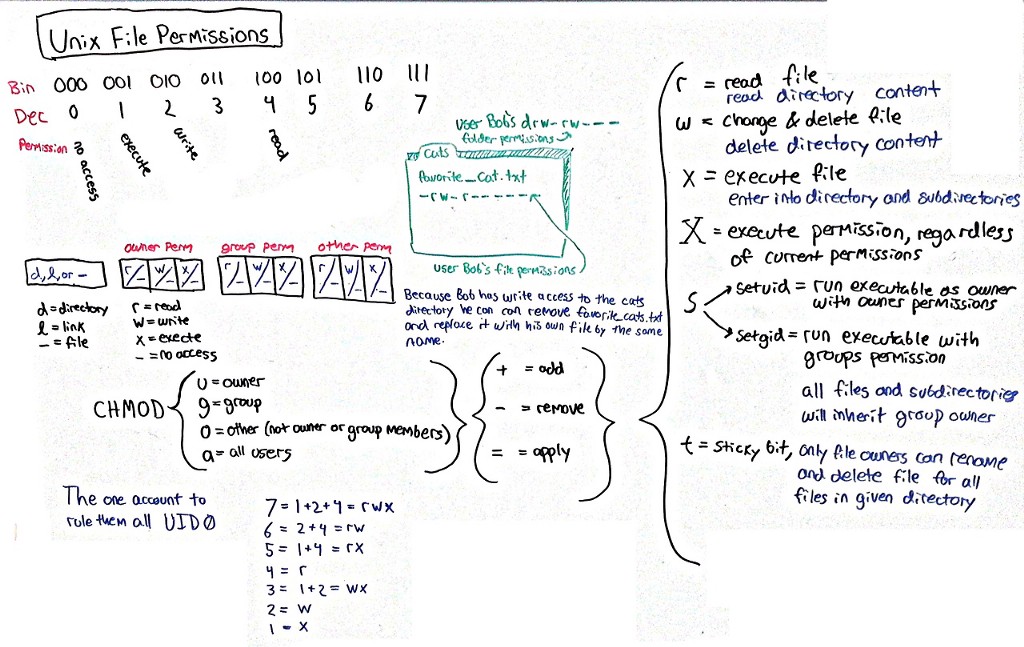 Unix File Permissions
Bin 000 001 010 011 100 101 110 111
Dec 0 1 2 3 4 5 6 7
Permission no access execute write read
user Bob's drw-rw----
folder permissions
Cats
favorite_cat.txt
-rw-r------
user Bob's file permissions
owner perm group perm other perm
d,l,or - r/- w/- x/- r/- w/- x/- r/- w/- x/-
d=directory
l=link
-=file
r=read
w=write
x=execte
-=no access
Because Bob has write access to the cats
directory he can can remove favorite_cats.txt
and replace it with his own file by the same
name.
CHMOD
u=owner
g=group
o=other (not owner or group members)
a=all users
+ =add
- =remove
= =apply
r = read file
read directory content
w = change & delete file
delete directory content
x = execute file
enter into directory and subdirectories
X = execute permission, regardless
of current permissions
s
setuid = run executable as owner
with owner permissions
setgid = run executable with
groups permission
all files and subdirectories
will inherit group owner
t = sticky bit, only file owners can rename
and delete file for all
files in given directory
The one account to
rule them all UID0
7=1+2+4=rwx
6=2+4=rw
5=1+4=rx
4=r
3=1+2=wx
2=w
1-x